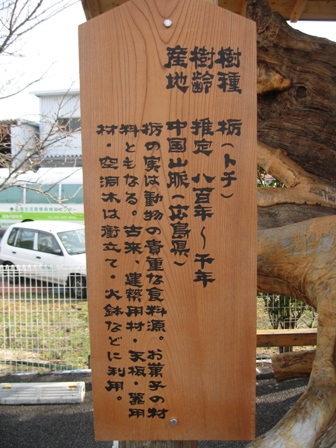 樹種 栃(トチ)
樹齢 推定 八百年～千年
産地 中国山脈(広島県)
栃の実は動物の貴重な食料源。お菓子の材
料ともなる。古来、建築用材・天板・器用
材・空洞木は衝立て・火鉢などに利用。